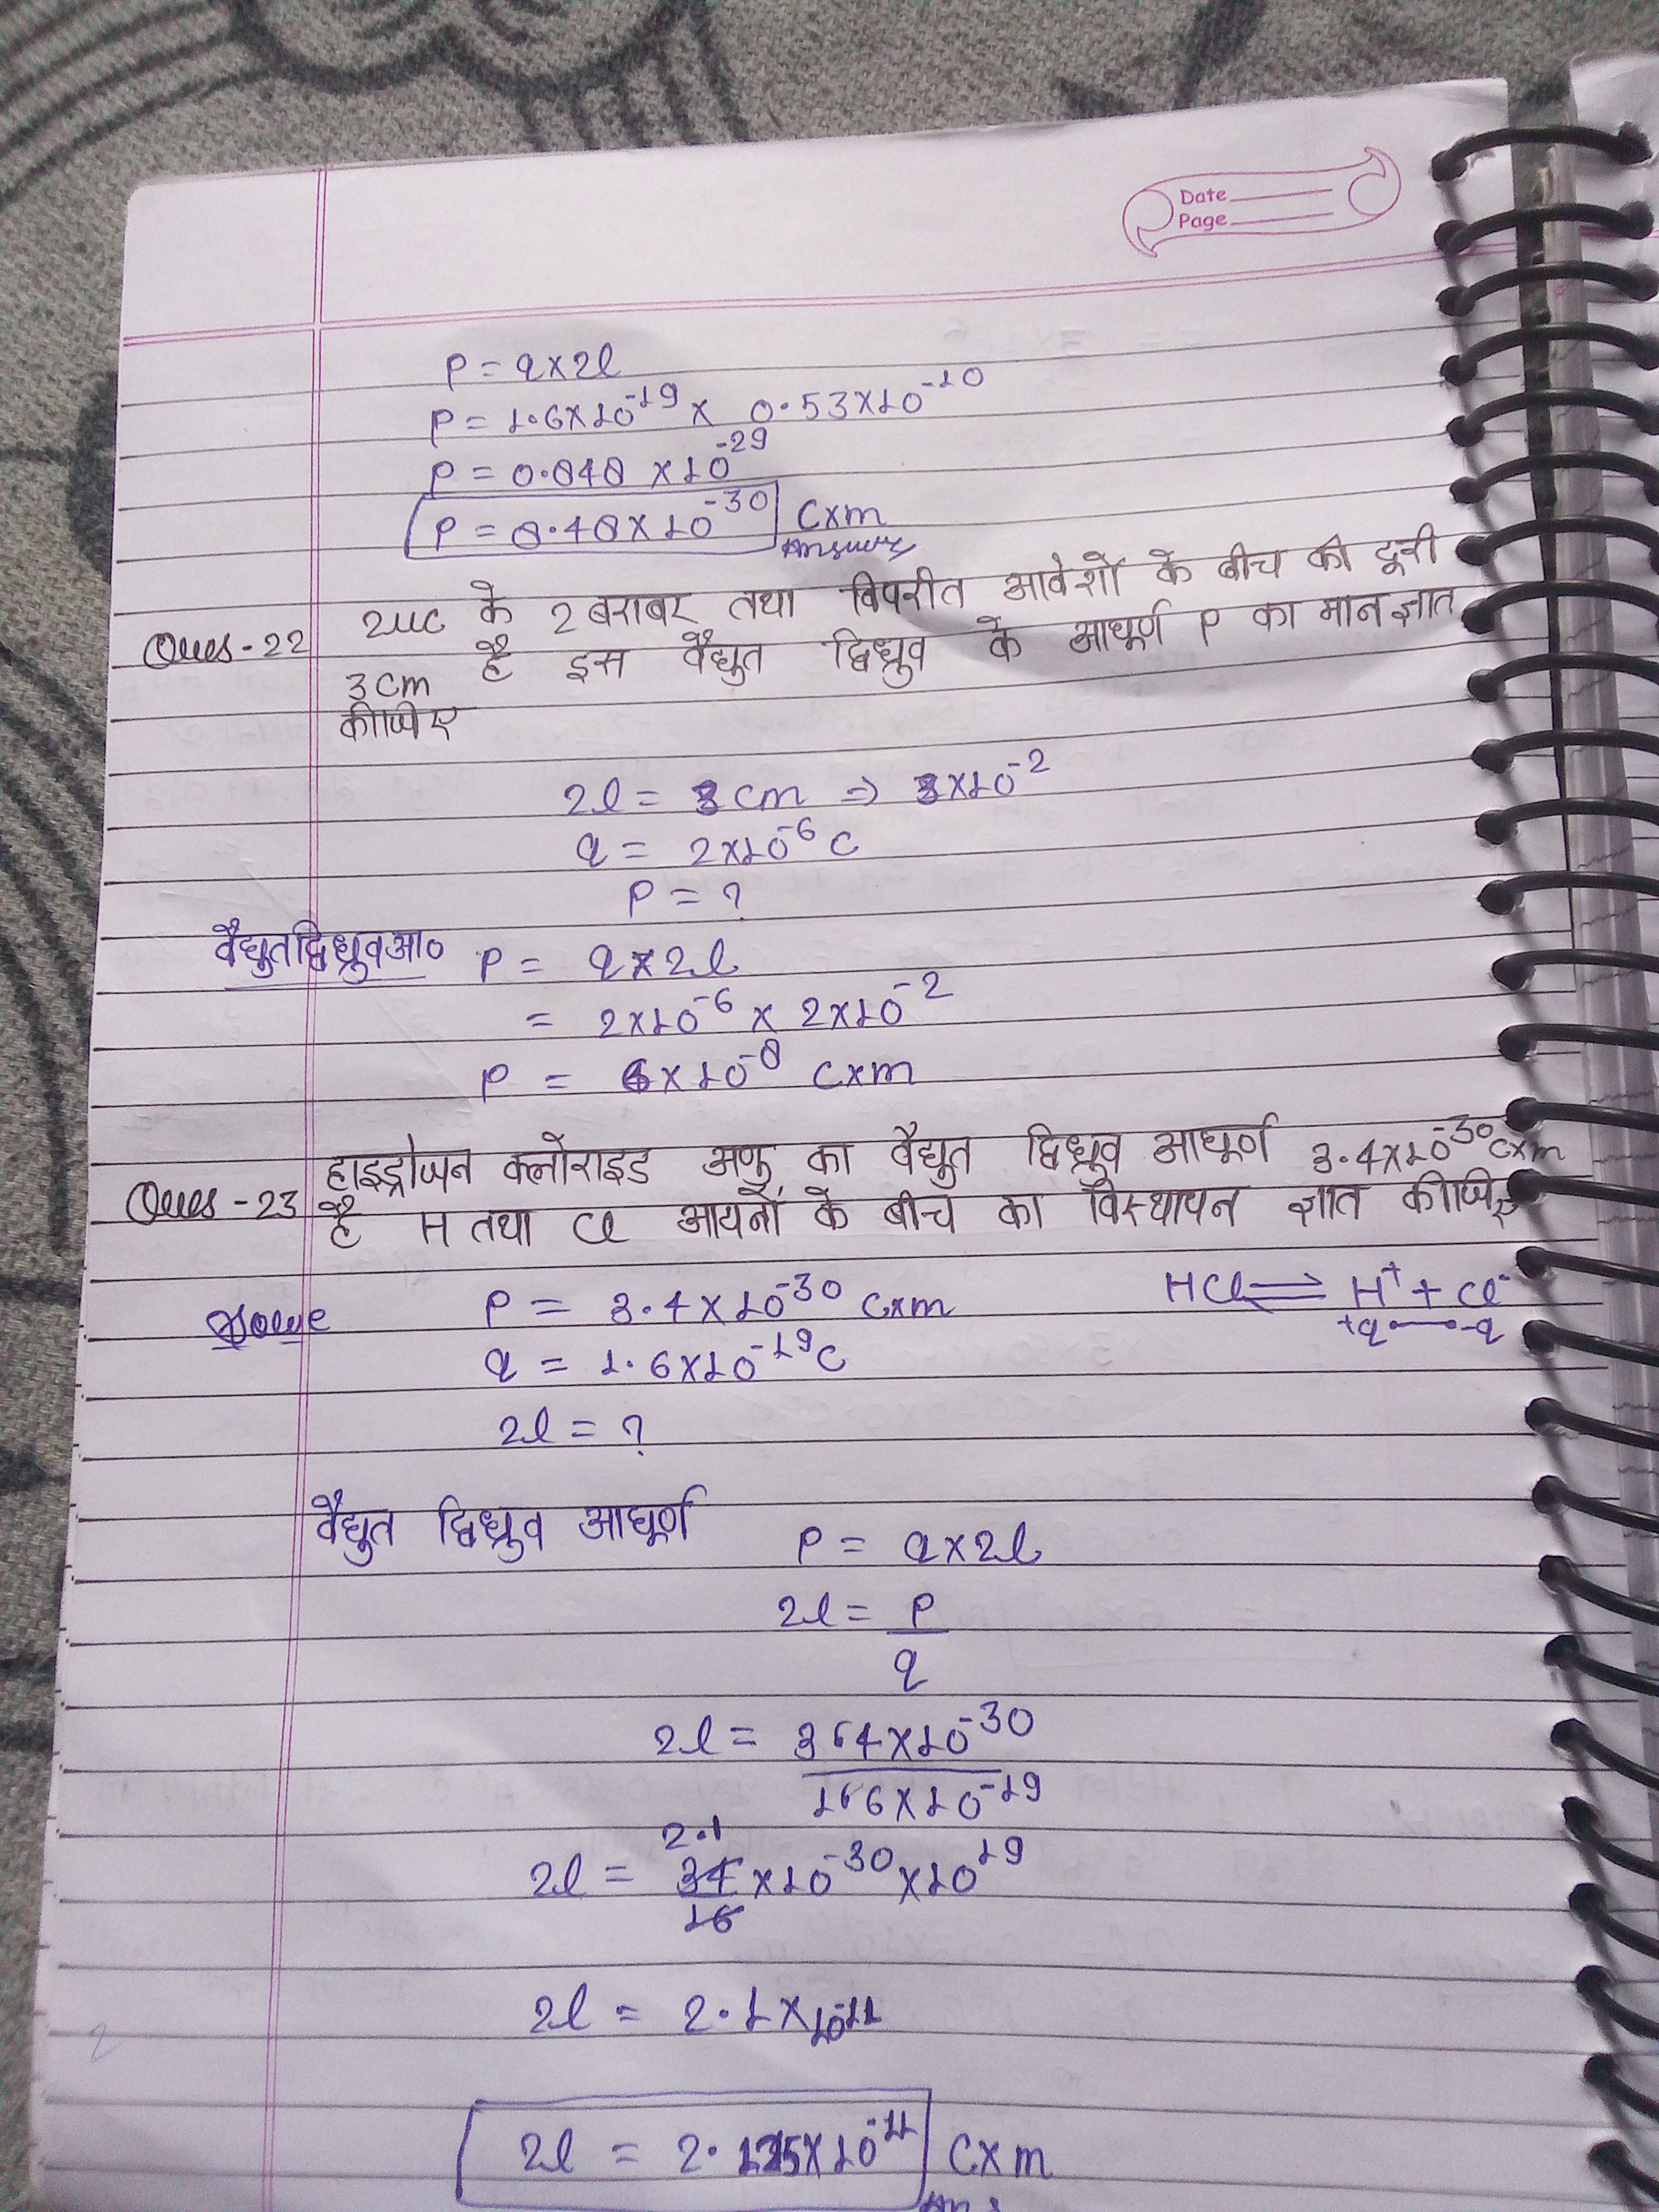 Date
Page
P = q×2l
P = 1.6×10^-19 × 0.53×10^-10
P = 0.848 ×10^-29
P = 8.48×10^-30 C×m
Answer
Ques-22 2uc के 2 बराबर तथा विपरीत आवेशों के बीच की दूरी
3cm है इस वैद्युत द्विध्रुव के आघूर्ण P का मान ज्ञात
कीजिए
2l = 3cm ⇒ 3×10^-2
q = 2×10^-6 C
P = ?
वैद्युतद्विध्रुवआ० P = q×2l
= 2×10^-6 × 2×10^-2
P = 6×10^-8 C×m
Ques-23 हाइड्रोजन क्लोराइड अणु का वैद्युत द्विध्रुव आघूर्ण 3.4×10^-30 C×m
है H तथा Cl आयनों के बीच का विस्थापन ज्ञात कीजिए
Solve P = 3.4×10^-30 C×m HCl ⇌ H^+ + Cl^-
q = 1.6×10^-19 C +q -q
2l = ?
वैद्युत द्विध्रुव आघूर्ण P = q×2l
2l = P
q
2l = 364×10^-30
166×10^-19
2.1
2l = 34×10^-30×10^19
16
2l = 2.1×10^-11
2
2l = 2.125×10^-11 C×m
Ans